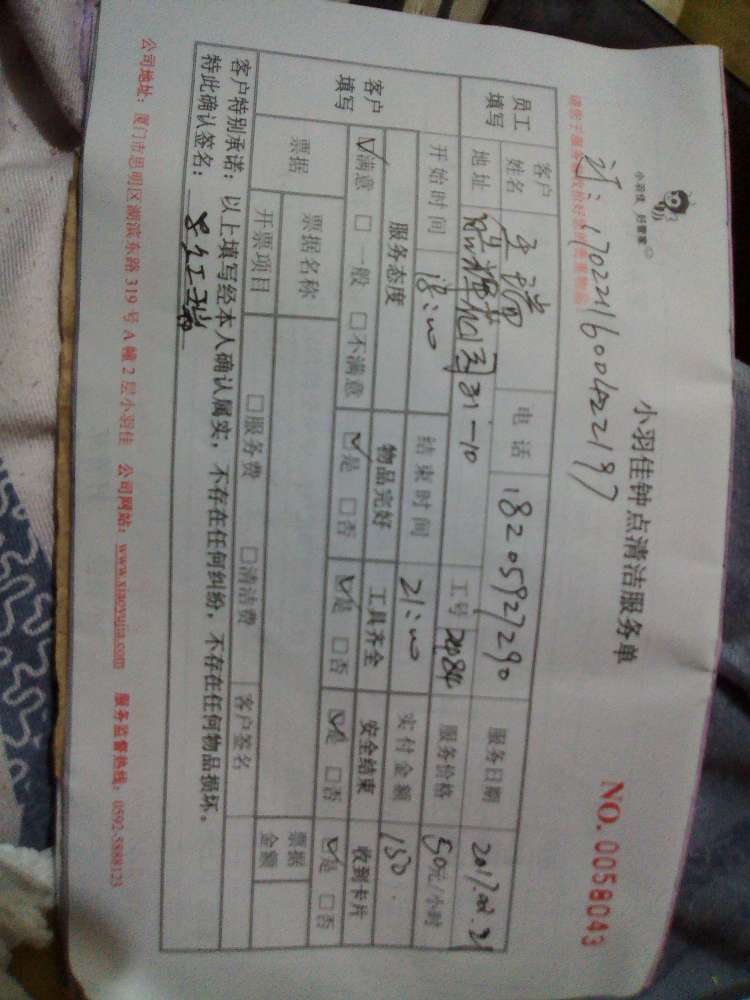 小羽佳 好管家
小羽佳钟点清洁服务单
NO.0058043
1702211600422197
员工填写 客户姓名 王瑞 电话 18205927290 服务日期
地址 31-10 工号 2084 服务价格 50元/小时
开始时间 18:00 结束时间 21:00 实付金额 150
客户填写 服务态度 物品完好 工具齐全 安全结束 收到卡片
☑满意 □一般 □不满意 ☑是 □否 ☑是 □否 ☑是 □否 ☑是 □否
票据 票据名称 □服务费 □清洁费 客户签名 票据金额
开票项目
客户特别承诺:以上填写经本人确认属实,不存在任何纠纷,不存在任何物品损坏。
特此确认签名:
公司地址:厦门市思明区湖滨东路 319 号 A 幢 2 层小羽佳 公司网站:www.xiaoyujia.com 服务监督热线:0592-5888123